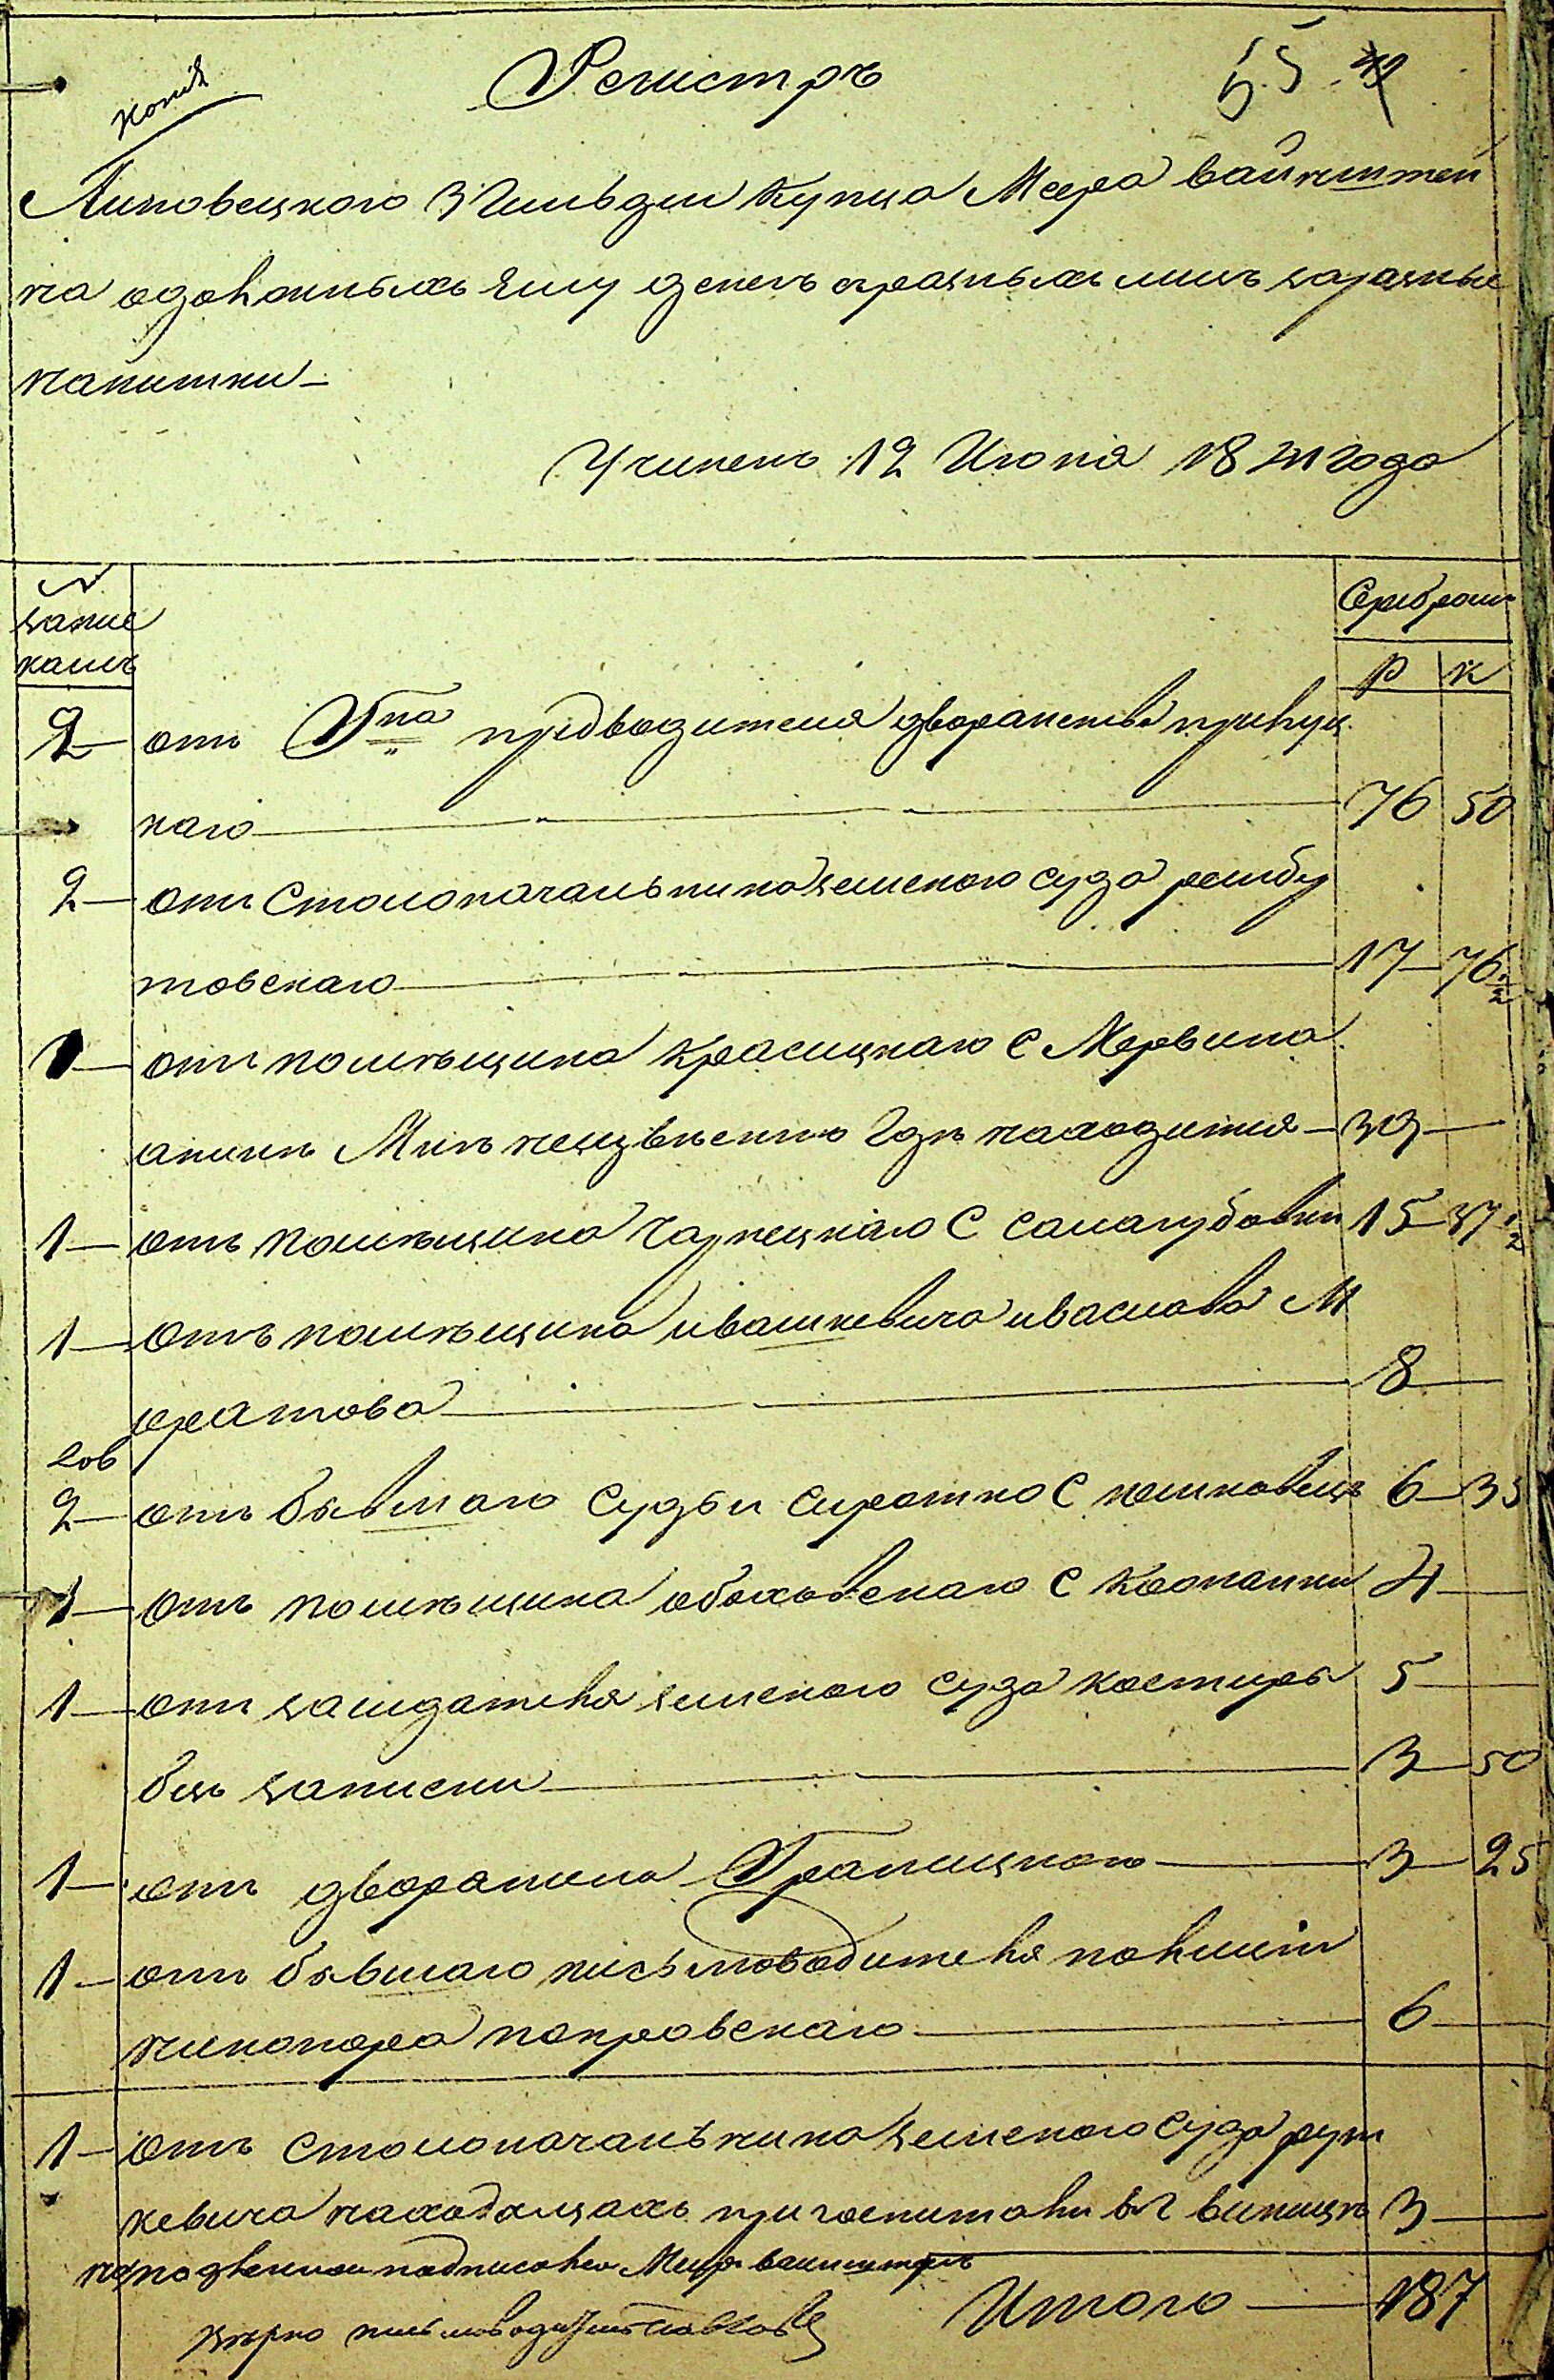 Копія
Регистръ
55
Липовецкого 3 Гильдии Купца Меера Вайнштей
на одолжныхъ Ему денегъ разныхъ лицъ заразные
напитки
Учиненъ 12 Июня 18 года
№
запис
камъ
Серебромъ
Р К
2 отъ Гна предводителя дворанства
каго 76 50
2 отъ Столоначальника земского суда рембу
товскаго 17 76 1/2
1 отъ помѣщика Красицкаго С Мервина
анинъ Мнѣ неизвѣсенно Гдѣ находится 39
1 отъ помѣщика Чарнецкаго С самагубовки 15 37 1/2
1 отъ помѣщика ивашкевича М
оратова 8
2 отъ бывшаго Судьи сиротко С 6 35
1 отъ помѣщика С Копанки 4
1 отъ заседателя земского Суда костыры 5
безъ записки 3 50
1 отъ дворанина Границкого 3 25
1 отъ бывшаго письмоводителя полицій
никопора покровскаго 6
1 отъ Столоначальника земского Суда рут
кевича находящахъ при госпиталѣ въ Г винницѣ 3
на подленномъ подписовал Меер вайнштейнъ
Итого 187
Вѣрно письмоводитель